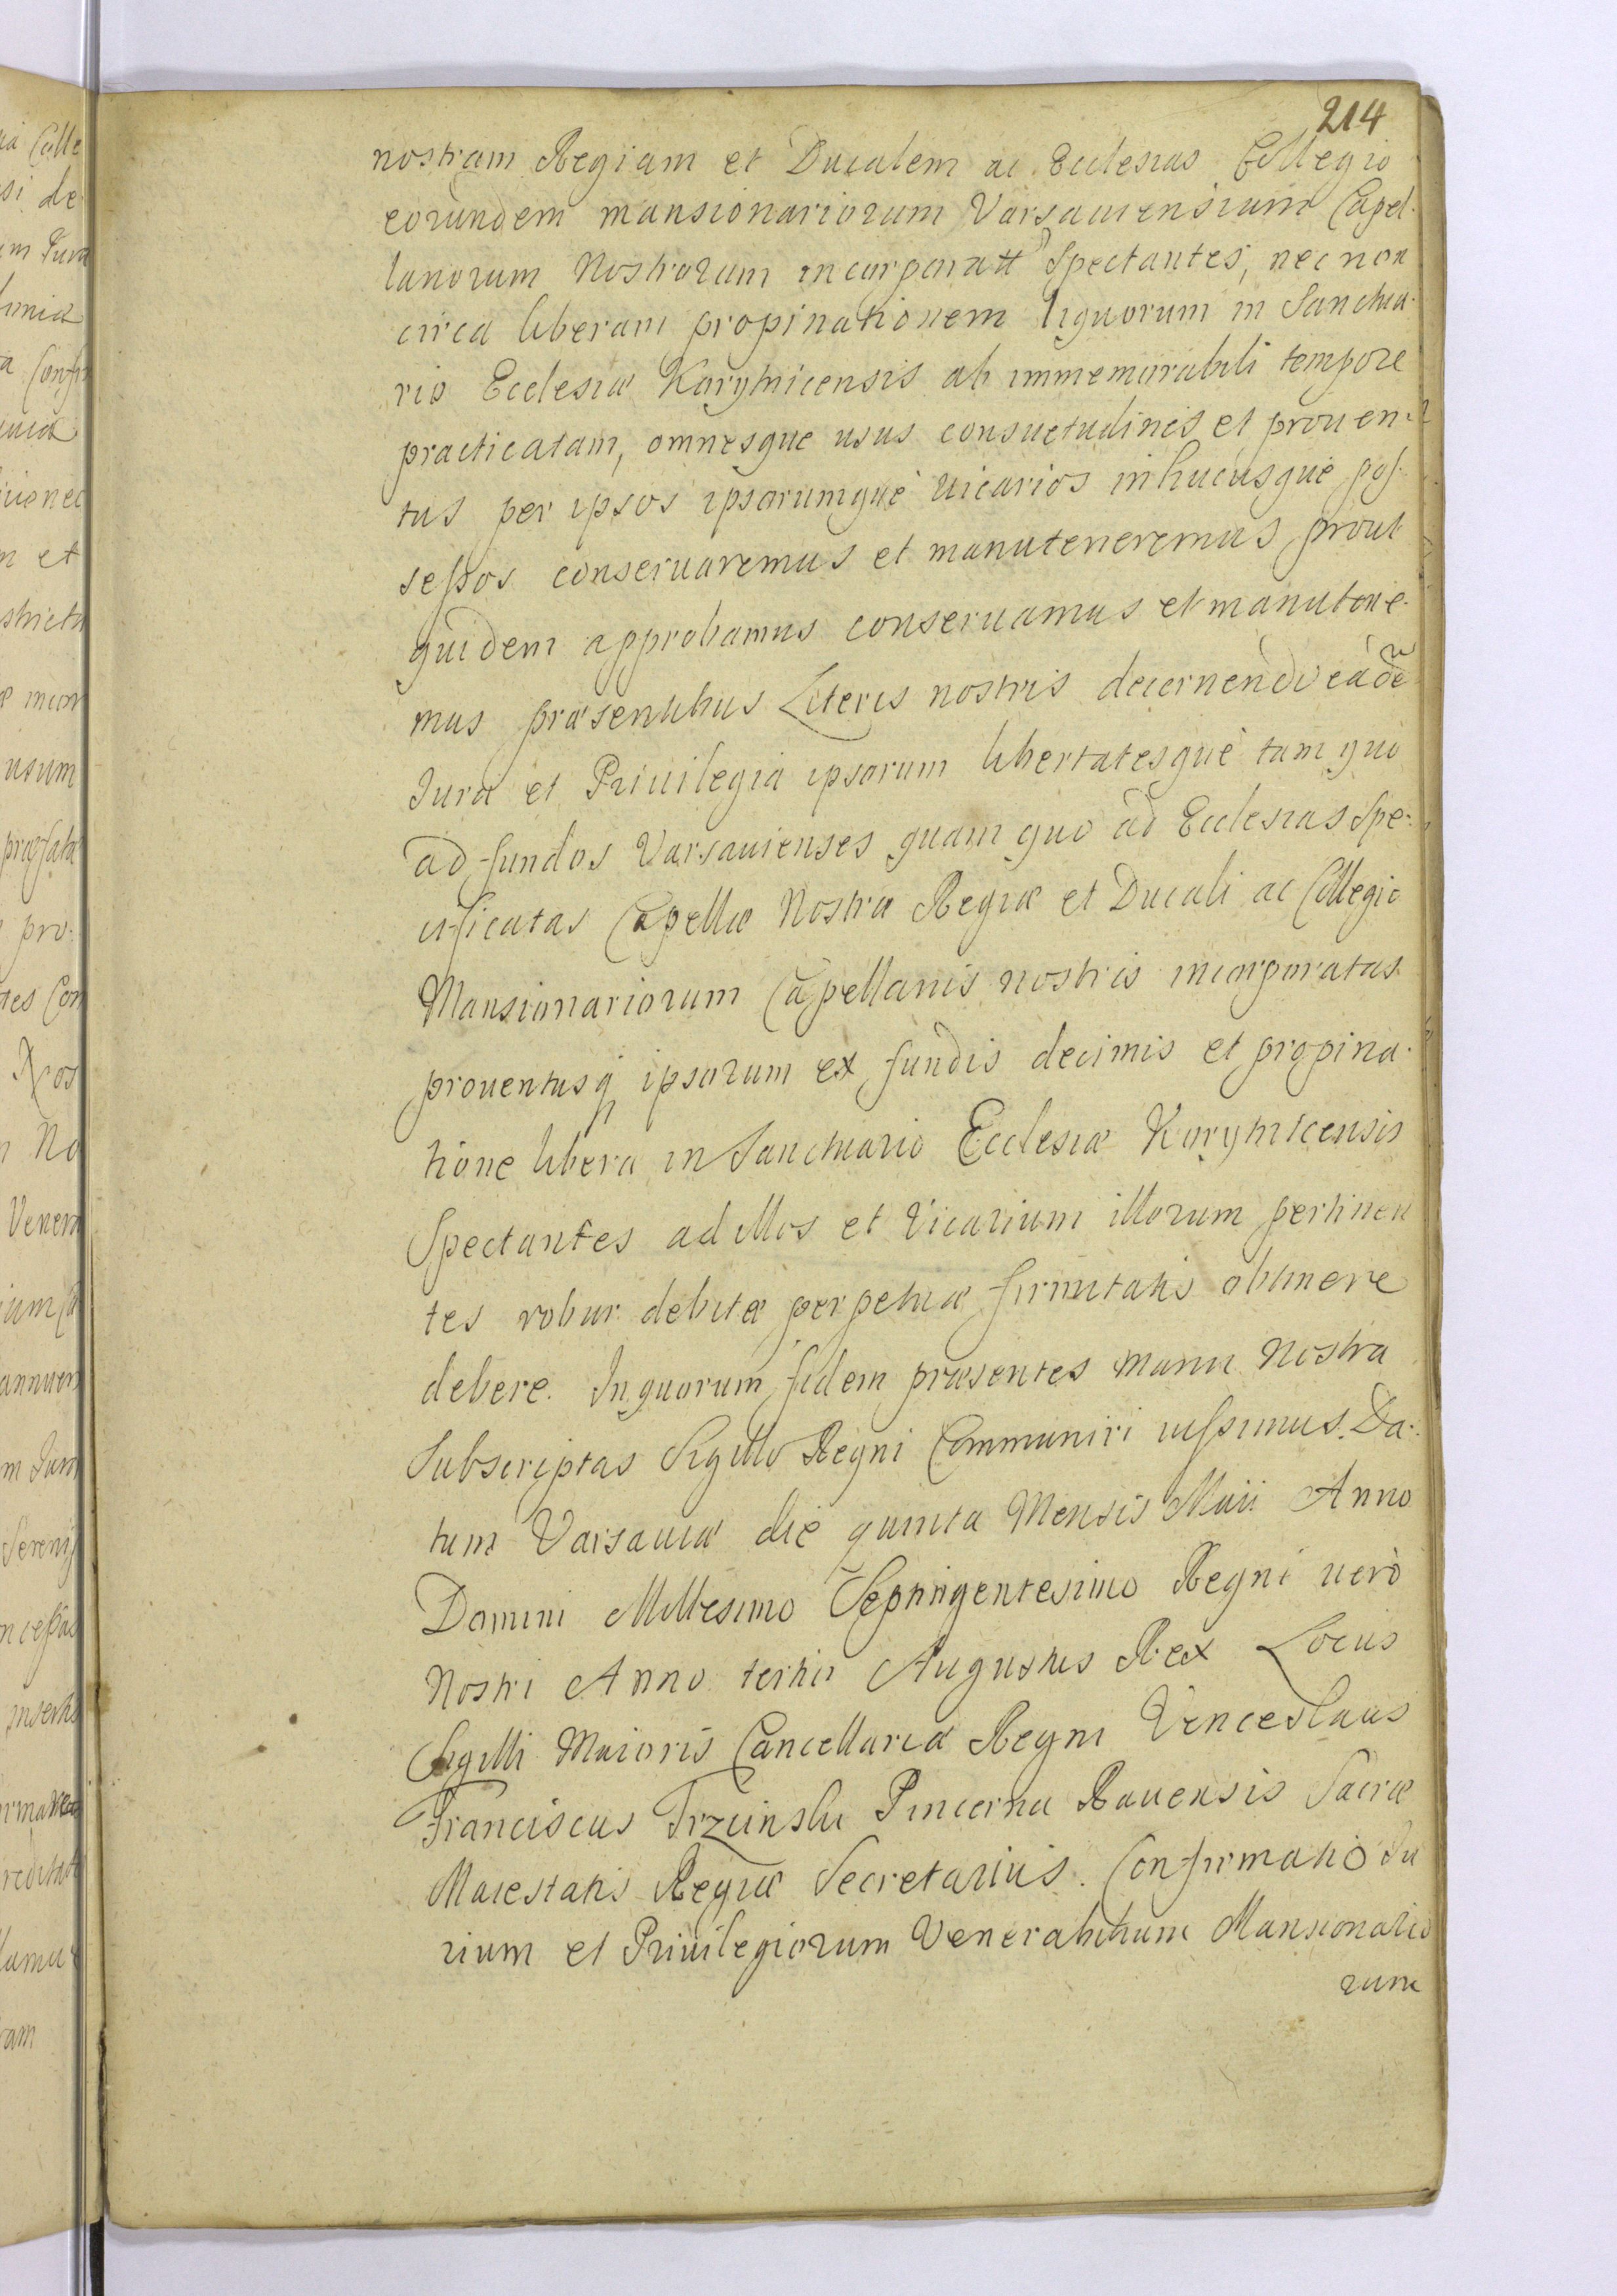 214
nostram Regiam et Ducalem ac Ecclesias Collegio
eorundem mansionariorum Varsauiensium Capel-
lanorum Nostrorum incorporatt Spectantes, nec non
circa liberam propinationem liquorum in Sanctua-
rio Ecclesiæ Korytnicensis ab immemorabili tempore
practicatam, omnesque usus consuetudines et prouen-
tus per ipsos ipsorumque uicarios in hucusque pos-
sessos conseruaremus et manuteneremus, prout
quidem approbamus conseruamus et manutene-
mus præsentibus Literis nostris decernendo eadē
Iura et Priuilegia ipsorum libertatesque tam quo
ad fundos Varsauienses quam quo ad Ecclesias Spe-
cificatas Capellæ Nostræ Regiæ et Ducali ac Collegio
Mansionariorum Capellanis nostris incorporatas
prouentusq ipsorum ex fundis decimis et propina-
tione libera in Sanctuario Ecclesiæ Korytnicensis
Spectantes ad illos et Vicarium illorum pertinen
tes robur debitæ perpetuæ firmitatis obtinere
debere. In quorum fidem præsentes manu Nostra
Subscriptas Sigillo Regni Communiri iussimus. Da-
tum Varsauiæ die quinta Mensis Maii Anno
Domini Millesimo Septingentesimo Regni uero
Nostri Anno tertio Augustus Rex Locus
Sigilli Maioris Cancellariæ Regni Venceslaus
Franciscus Trzcinski Pincerna Rauensis Sacræ
Maiestatis Regiæ Secretarius. Confirmatio Iu
rium et Priuilegiorum Venerabilium Mansionario
rum